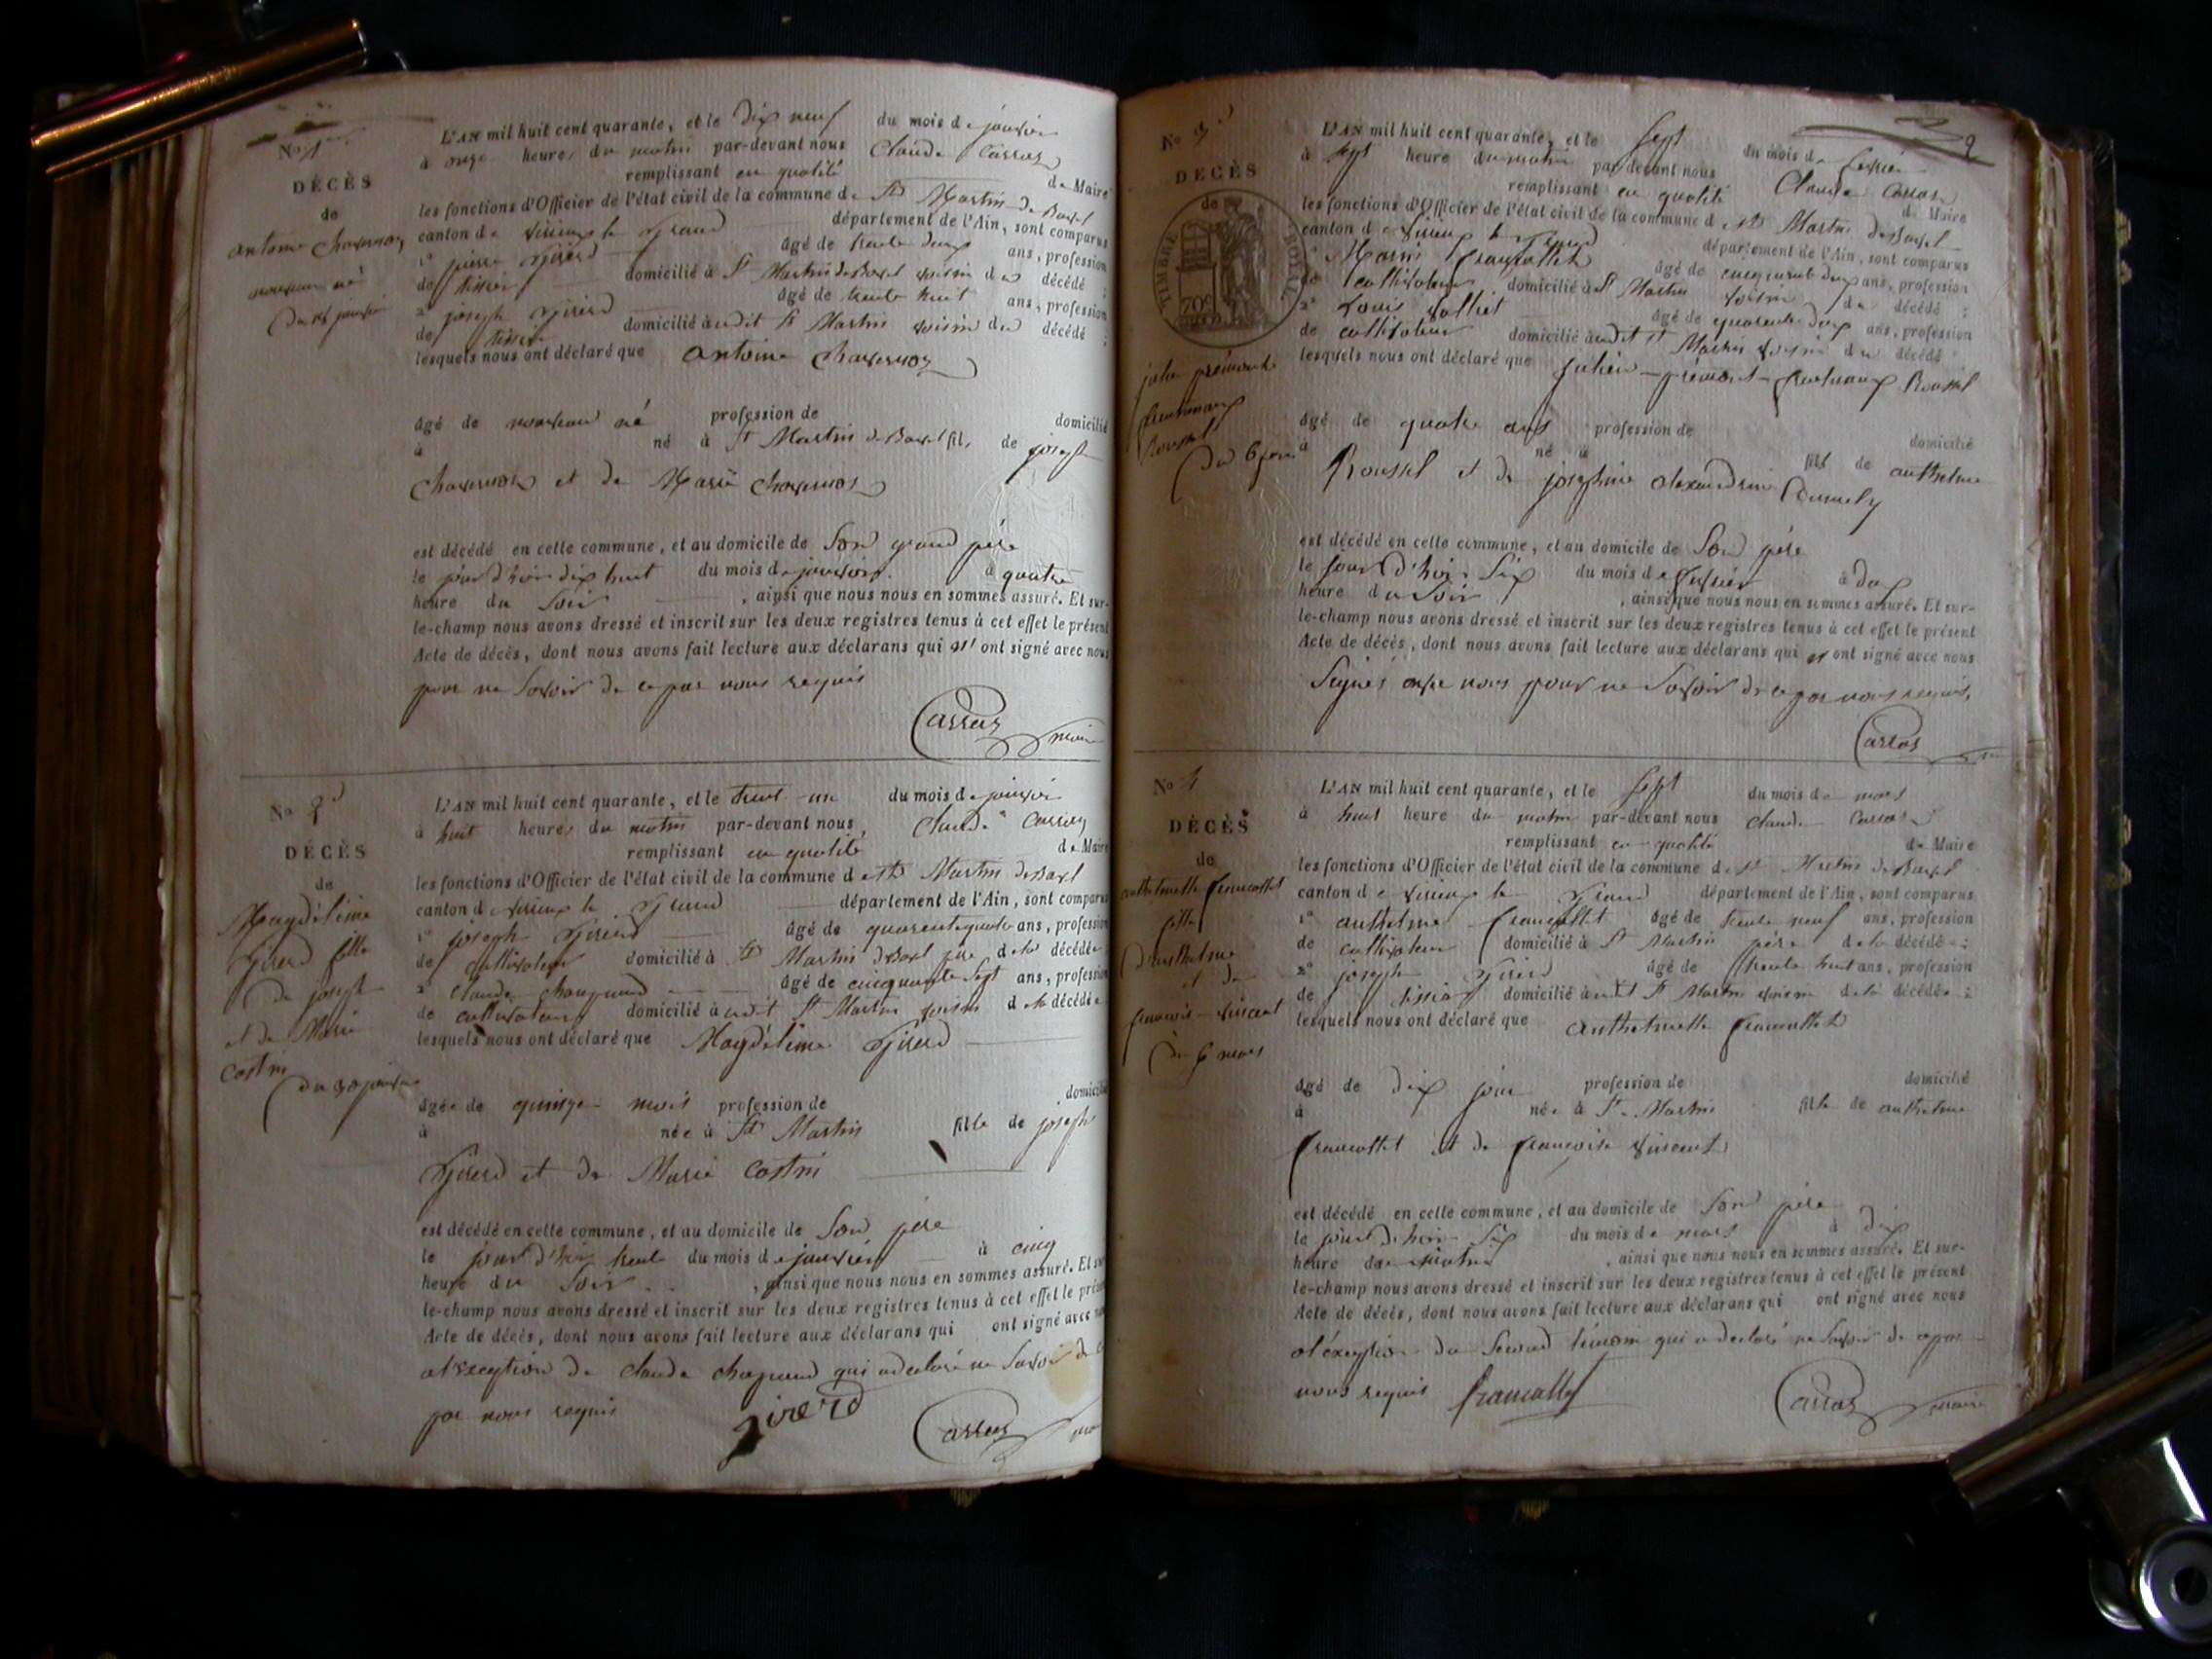 No 1
DÉCÈS
de
antoine Chavernoz
nouveau né
du 18 janvier
L'AN mil huit cent quarante, et le dix neuf du mois de janvier
à onze heures du matin par-devant nous Claude Carras
remplissant en qualité de Maire
les fonctions d'Officier de l'état civil de la commune de St Martin de Bavel
canton de virieux le grand département de l'Ain, sont comparus
1° pierre Girerd âgé de trente deux ans, profession
de tissier domicilié à St Martin de Bavel voisin du décédé;
2° joseph Girerd âgé de trente huit ans, profession
de tissier domicilié audit St Martin voisin du décédé;
lesquels nous ont déclaré que antoine Chavernoz
âgé de nouveau né profession de domicilié
à né à St Martin de Bavel fils de joseph
Chavernoz et de Marie Chavernoz
est décédé en cette commune, et au domicile de Son grand père
le jour d'hier dix huit du mois de janvier. à quatre
heure du Soir, ainsi que nous nous en sommes assuré. Et sur-
le-champ nous avons dressé et inscrit sur les deux registres tenus à cet effet le présent
Acte de décès, dont nous avons fait lecture aux déclarans qui n' ont signé avec nous
pour ne Savoir de ce par nous requis
Carras maire
No 2
DÉCÈS
de
Magdeleine
Girerd fille
de joseph
et de Marie
Costin
du 30 janvier
L'AN mil huit cent quarante, et le trent un du mois de janvier
à huit heures du matin par-devant nous, Claude Carras
remplissant en qualité de Maire
les fonctions d'Officier de l'état civil de la commune de St Martin de Bavel
canton de virieux le Grand département de l'Ain, sont comparus
1° joseph Girerd âgé de quarante quatre ans, profession
de cultivateur domicilié à St Martin de Bavel père de la décédée
2° Claude Chapuand âgé de cinquante Sept ans, profession
de cultivateur domicilié audit St Martin voisin de la décédée
lesquels nous ont déclaré que Magdeleine Girerd
âgée de quinze mois profession de domicilié
à née à St Martin fille de joseph
Girerd et de Marie Costin
est décédé en cette commune, et au domicile de Son père
le jour d'hier trente du mois de janvier à cinq
heure du Soir, ainsi que nous nous en sommes assuré. Et sur-
le-champ nous avons dressé et inscrit sur les deux registres tenus à cet effet le présent
Acte de décès, dont nous avons fait lecture aux déclarans qui ont signé avec nous
a l'exception de Claude Chapuand qui a déclaré ne Savoir de ce
par nous requis
girerd Carras
2
No 3
DÉCÈS
de
TIMBRE ROYAL
70c
Roussel
du 6 fevrier
L'AN mil huit cent quarante, et le Sept du mois de fevrier
à Sept heure du matin par-devant nous Claude Carras
remplissant en qualité de Maire
les fonctions d'Officier de l'état civil de la commune de St Martin de Bavel
canton de virieux le Grand département de l'Ain, sont comparus
1° Marin francollet âgé de cinquante deux ans, profession
de cultivateur domicilié à St Martin voisin du décédé;
2° Louis âgé de quarante deux ans, profession
de cultivateur domicilié audit St Martin voisin du décédé
lesquels nous ont déclaré que Julien Roussel
âgé de quatre ans profession de domicilié
à né à fils de anthelme
Roussel et de josephine alexandrine
est décédé en cette commune, et au domicile de Son père
le jour d'hier Six du mois de fevrier à dix
heure du Soir, ainsi que nous nous en sommes assuré. Et sur-
le-champ nous avons dressé et inscrit sur les deux registres tenus à cet effet le présent
Acte de décès, dont nous avons fait lecture aux déclarans qui n' ont signé avec nous
Signés avec nous pour ne Savoir de ce par nous requis.
Carras
No 4
DÉCÈS
de
anthelmette francollet
fille
d'anthelme
et de
françoise vincent
du 6 mars
L'AN mil huit cent quarante, et le Sept du mois de mars
à huit heure du matin par-devant nous Claude Carras
remplissant en qualité de Maire
les fonctions d'Officier de l'état civil de la commune de St Martin de Bavel
canton de virieux le Grand département de l'Ain, sont comparus
1° anthelme francollet âgé de trente neuf ans, profession
de cultivateur domicilié à St Martin père de la décédée;
2° joseph Girerd âgé de trente huit ans, profession
de tissier domicilié audit St Martin voisin de la décédée;
lesquels nous ont déclaré que anthelmette francollet
âgé de dix jour profession de domicilié
à née à St Martin fille de anthelme
francollet et de françoise vincent
est décédé en cette commune, et au domicile de Son père
le jour d'hier Six du mois de mars à dix
heure du matin, ainsi que nous nous en sommes assuré. Et sur-
le-champ nous avons dressé et inscrit sur les deux registres tenus à cet effet le présent
Acte de décès, dont nous avons fait lecture aux déclarans qui ont signé avec nous
a l'exception du Second témoin qui a déclaré ne Savoir de ce par
nous requis francollet Carras maire